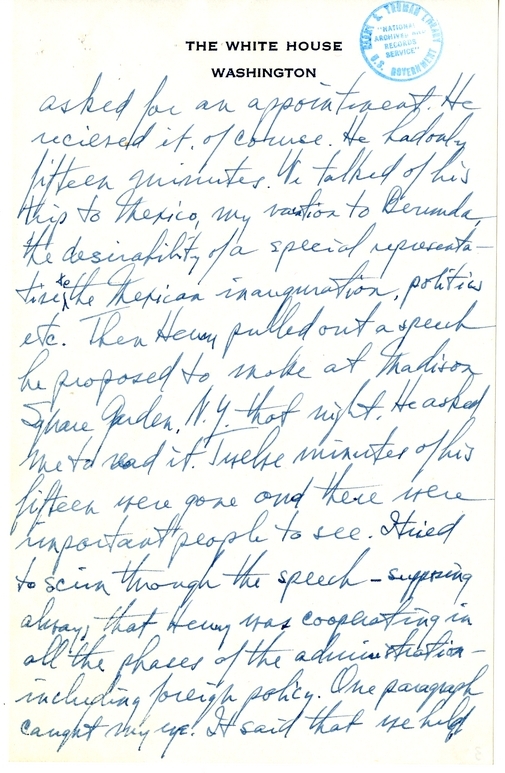 THE WHITE HOUSE
WASHINGTON
HARRY S. TRUMAN LIBRARY
"NATIONAL
ARCHIVES AND
RECORDS
SERVICE"
U.S. GOVERNMENT
asked for an appointment. He
recieved it, of course. He had only
fifteen minutes. We talked of his
trip to Mexico, my vacation to Bermuda,
the desirability of a special representa-
tive to the Mexican inauguration, politics
etc. Then Henry pulled out a speech
he proposed to make at Madison
Square Garden, N.Y. that night. He asked
me to read it. Twelve minutes of his
fifteen were gone and there were
important people to see. I tried
to scim through the speech - supposing
always that Henry was cooperating in
all the phases of the administration -
including foreign policy. One paragraph
caught my eye. It said that we held